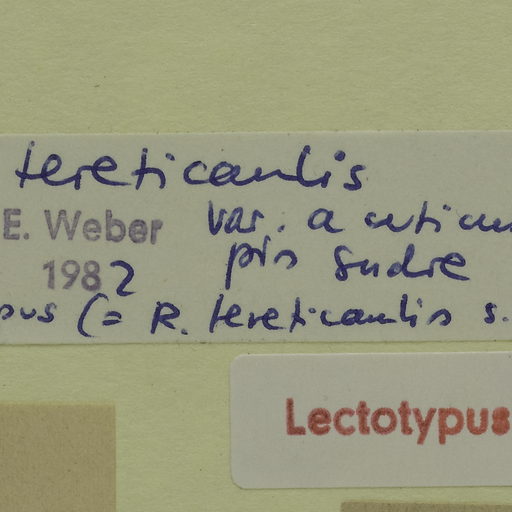 tereticaulis
E. Weber var. acuticus
1982 pis Sudre
pus (= R. tereticaulis s.
Lectotypus